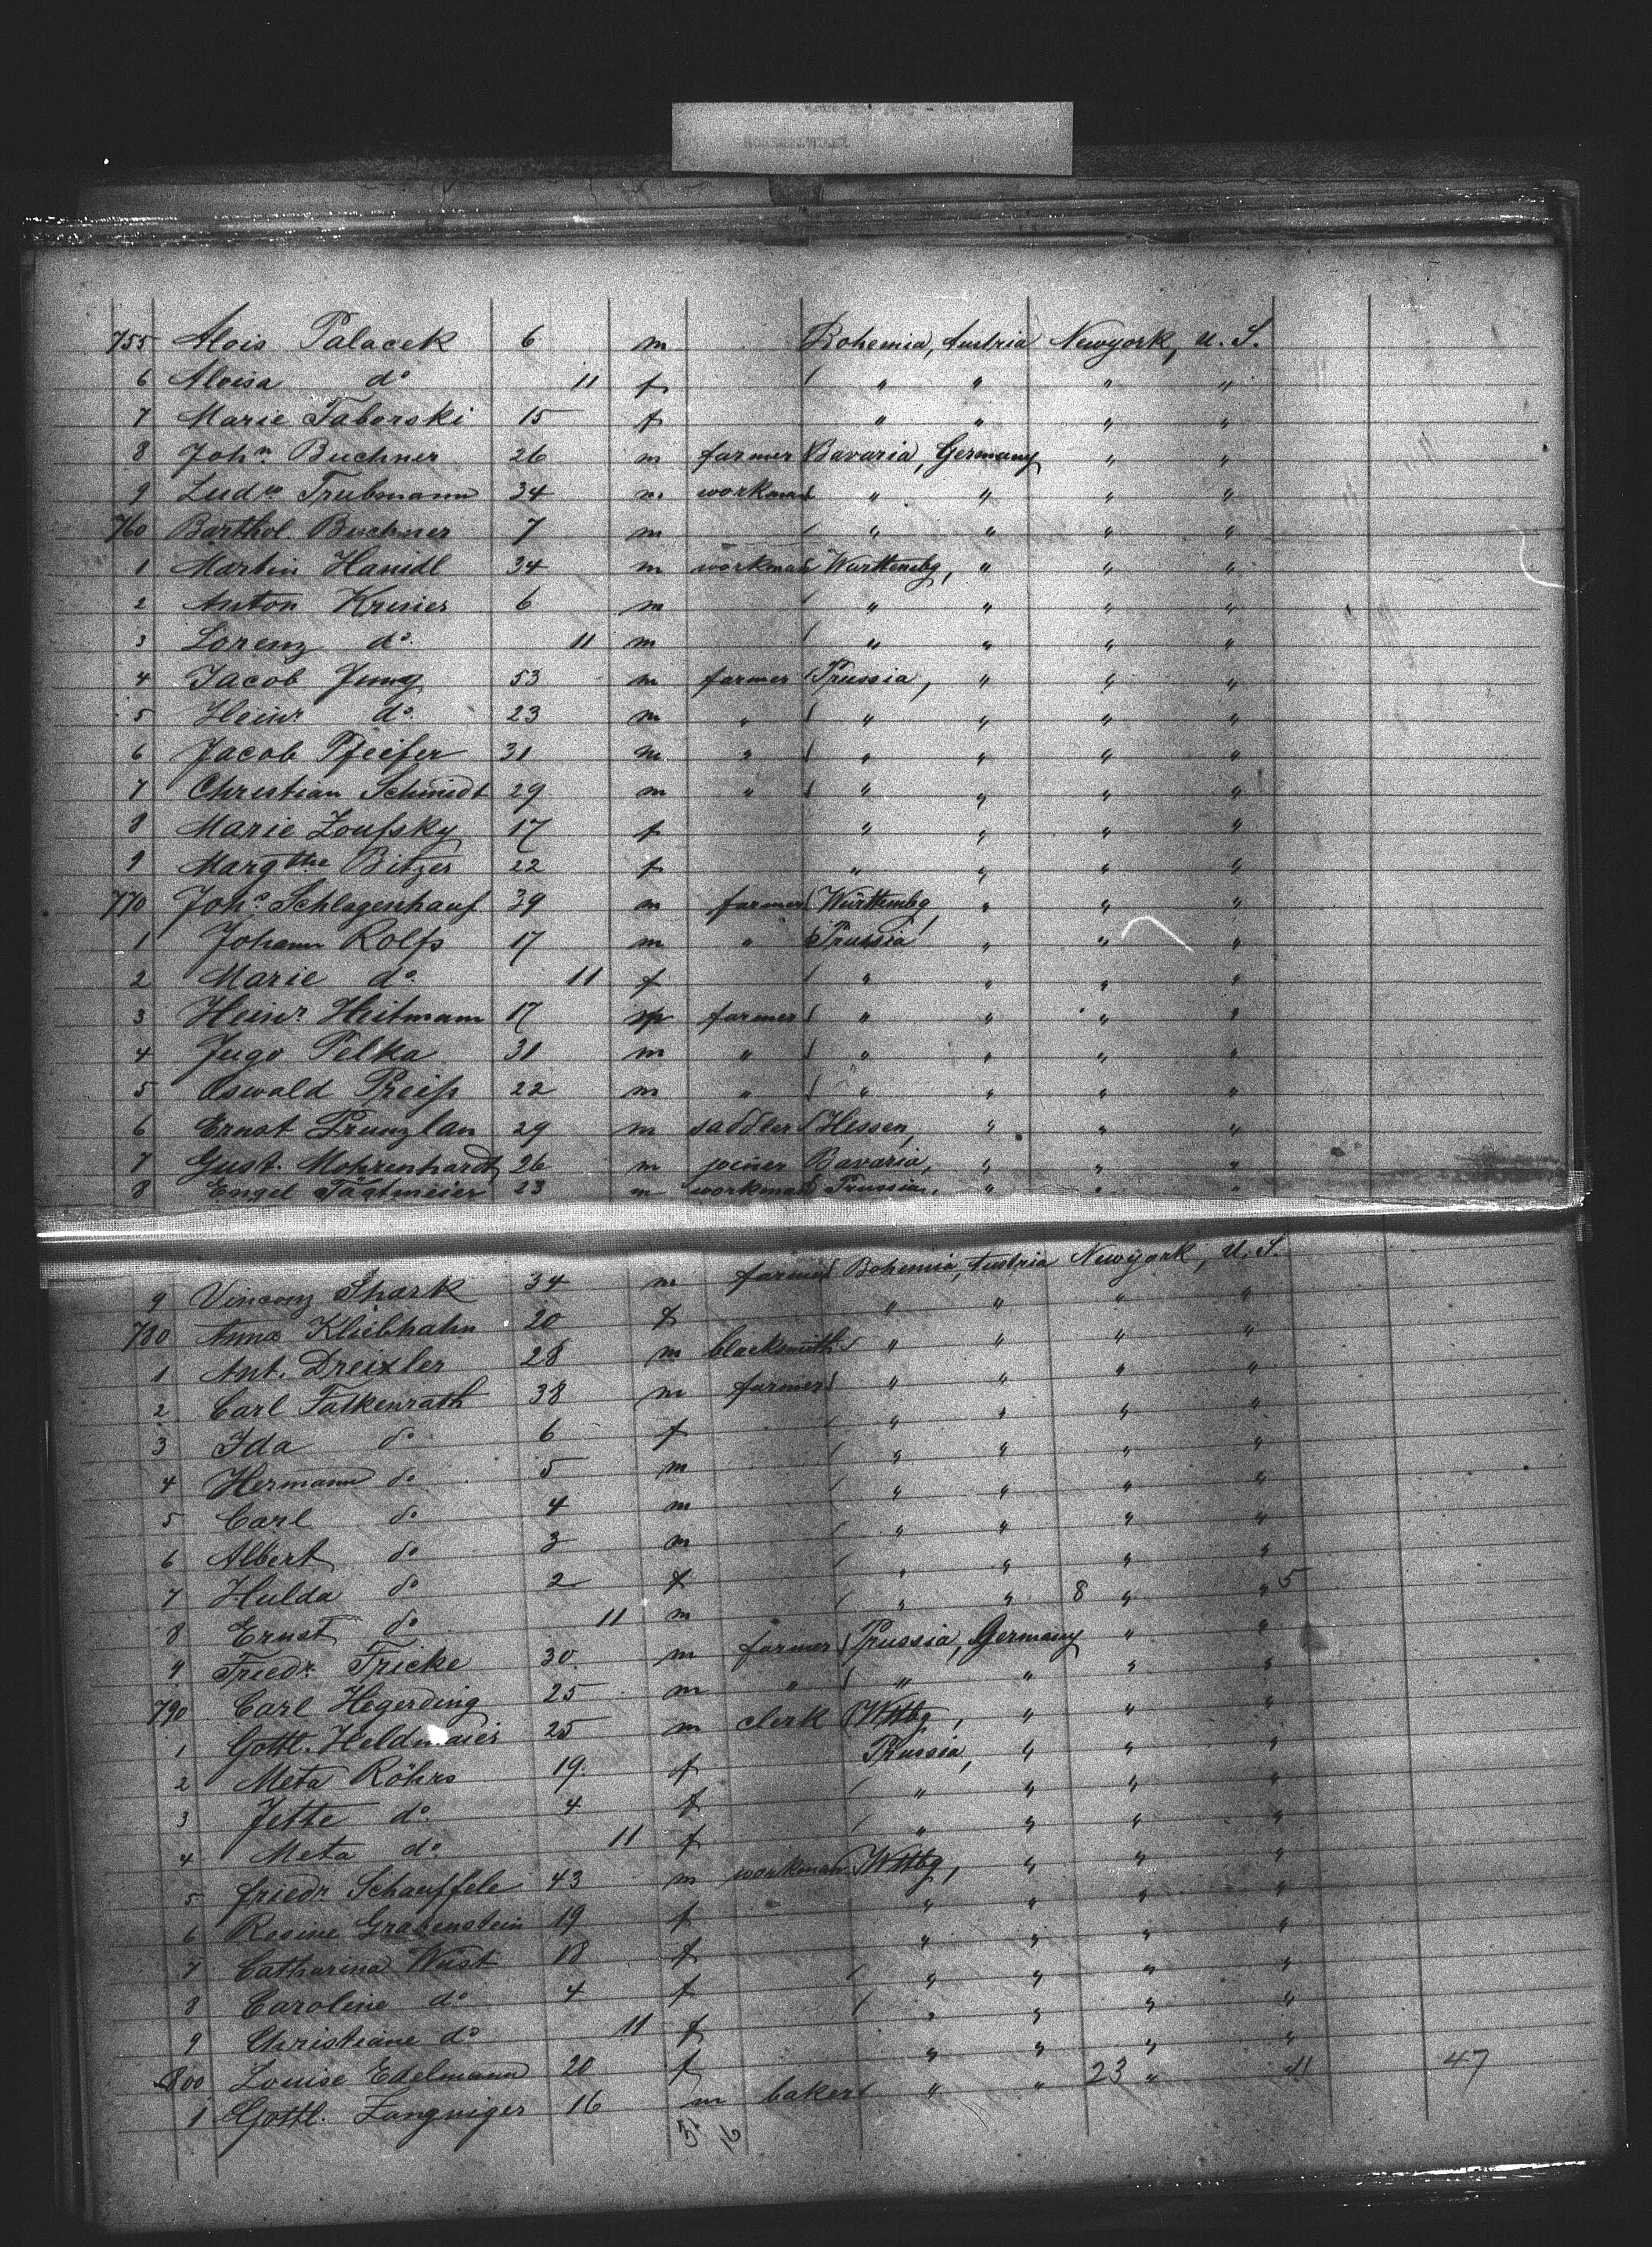 755 Alois Palacek 6 m Bohemia, Austria Newyork, U. S.
6 Aloisa do 11 f " " " "
7 Marie Taborski 15 f " " " "
8 John Buchner 26 m farmer Bavaria, Germany " "
9 Ludw Trubmann 34 m workman " " " "
760 Barthol. Buchner 7 m " " " "
1 Martin Hanidl 34 m workman Württembg, " " "
2 Anton Kreiser 6 m " " " "
3 Lorenz do. 11 m " " " "
4 Jacob Jung 53 m farmer Prussia, " " "
5 Heinr. do. 23 m " " " " "
6 Jacob Pfeifer 31 m " " " " "
7 Christian Schmidt 29 m " " " " "
8 Marie Zoufsky 17 f " " " "
9 Margthe Bitzer 22 f " " " "
770 Johs. Schlagenhauf 39 m farmer Württembg, " " "
1 Johann Rolfs 17 m " Prussia " " "
2 Marie do. 11 f " " " "
3 Heinr. Heitmann 17 m farmer " " " "
4 Jugo Pelka 31 m " " " " "
5 Oswald Preiß 22 m " " " " "
6 Ernst Prunzlau 29 m saddler Hessen, " " "
7 Gust. Mohrenhardt 26 m joiner Bavaria, " " "
8 Engel Tägtmeier 23 m workman Prussia, " " "
9 Vincenz Shark 34 m farmer Bohemia, Austria Newyork, U. S.
780 Anna Kliebhahn 20 f " " " "
1 Ant. Dreixler 28 m blacksmith " " " "
2 Carl Falkenrath 38 m farmer " " " "
3 Ida do 6 f " " " "
4 Hermann do 5 m " " " "
5 Carl do 4 m " " " "
6 Albert do 3 m " " " "
7 Hulda do 2 f " " " "
8 Ernst do 11 m " " 8 " " 5
9 Friedr. Fricke 30 m farmer Prussia, Germany " "
790 Carl Hegerding 25 m " " " " "
1 Gottl. Heldmaier 25 m clerk Wttbg, " " "
2 Meta Röhrs 19 f Prussia, " " "
3 Jette do. 4 f " " " "
4 Meta do. 11 f " " " "
5 Friedr Schauffele 43 m workman Wttbg, " " "
6 Rosine Grabenstein 19 f " " " "
7 Catharina Wüst 18 f " " " "
8 Caroline do 4 f " " " "
9 Christiane do 11 f " " " "
800 Louise Edelmann 20 f " " " "
1 Gottl. Zangniger 16 m baker " " 23 " 11 47